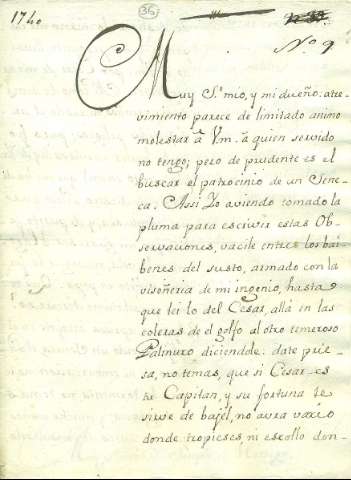 1740
36
N.º 9
Muy S.r mio, y mi dueño: atre-
vimiento parece de limitado animo
molestar â Vm. â quien servido
no tengo; pero de prudente es el
buscar el patrocinio de un Sene-
ca. Assi Yo aviendo tomado la
pluma para escrivir estas Ob-
servaciones, vacile entre los bai-
benes del susto, armado con la
visoñeria de mi ingenio, hasta
que lei lo del Cesar, allá en las
coleras de el golfo al otro temeroso
Palinuro diciendole: date prie-
sa, no temas, que si Cesar es
tu Capitan, y su fortuna te
sirve de bajel, no avra vaxio
donde tropieses, ni escollo don-